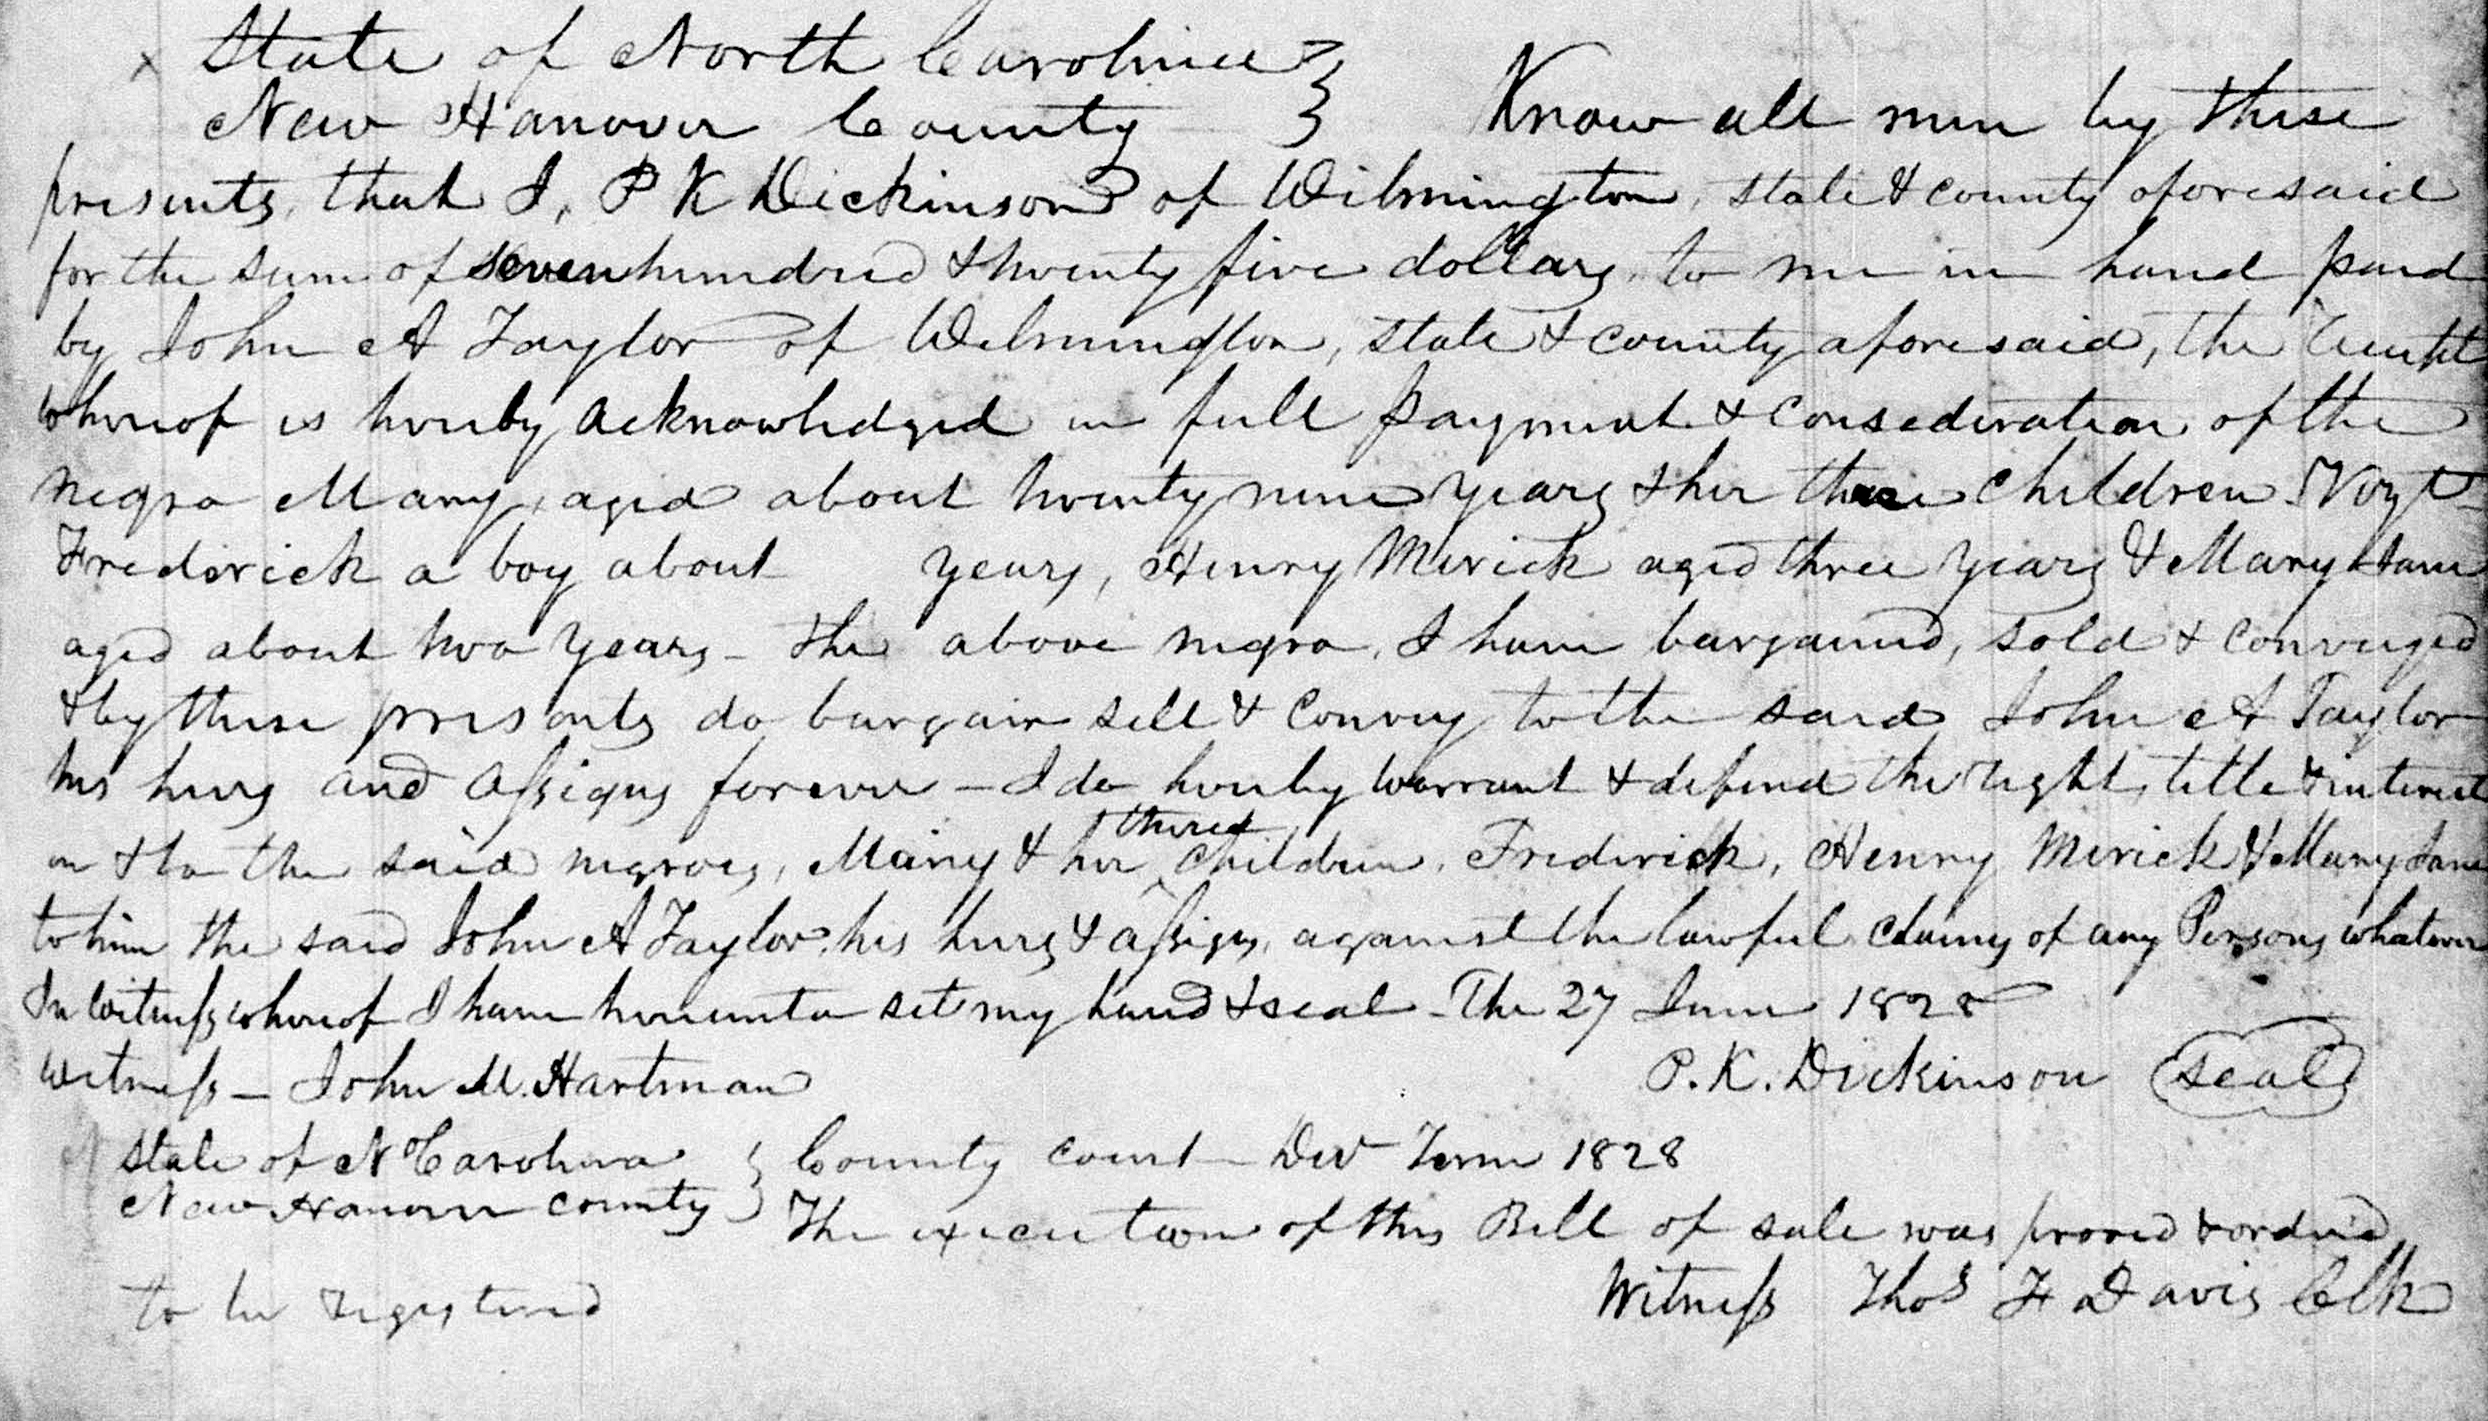 x State of North Carolina }
New Hanover County } Know all men by these
presents, that I, P K Dickinson of Wilmington, state & county aforesaid
for the sum of seven hundred & twenty five dollars to me in hand paid
by John A Taylor of Wilmington, state & county aforesaid, the receipt
whereof is hereby acknowledged in full payment & consideration of the
negro Mary, aged about twenty nine years & her three children
Frederick a boy about years, Henry Merick aged three years & Mary Jane
aged about two years - the above negro, I have bargained, sold & conveyed
& by these presents do bargain sell & convey to the said John A Taylor
his heirs and assigns forever - I do hereby warrant & defend the right, title & interest
in & to the said negroes, Mary & her three children, Frederick, Henry Merick & Mary Jane
to him the said John A Taylor, his heirs & assigns, against the lawful claims of any Persons whatever
In witness whereof I have hereunto set my hand & seal - The 27 June 1828
Witness - John M. Hartman P. K. Dickinson seal
State of N Carolina } County court - Term 1828
New Hanover county } The execution of this Bill of sale was proved & ordered
to be registered
Witness Thos F Davis Clk